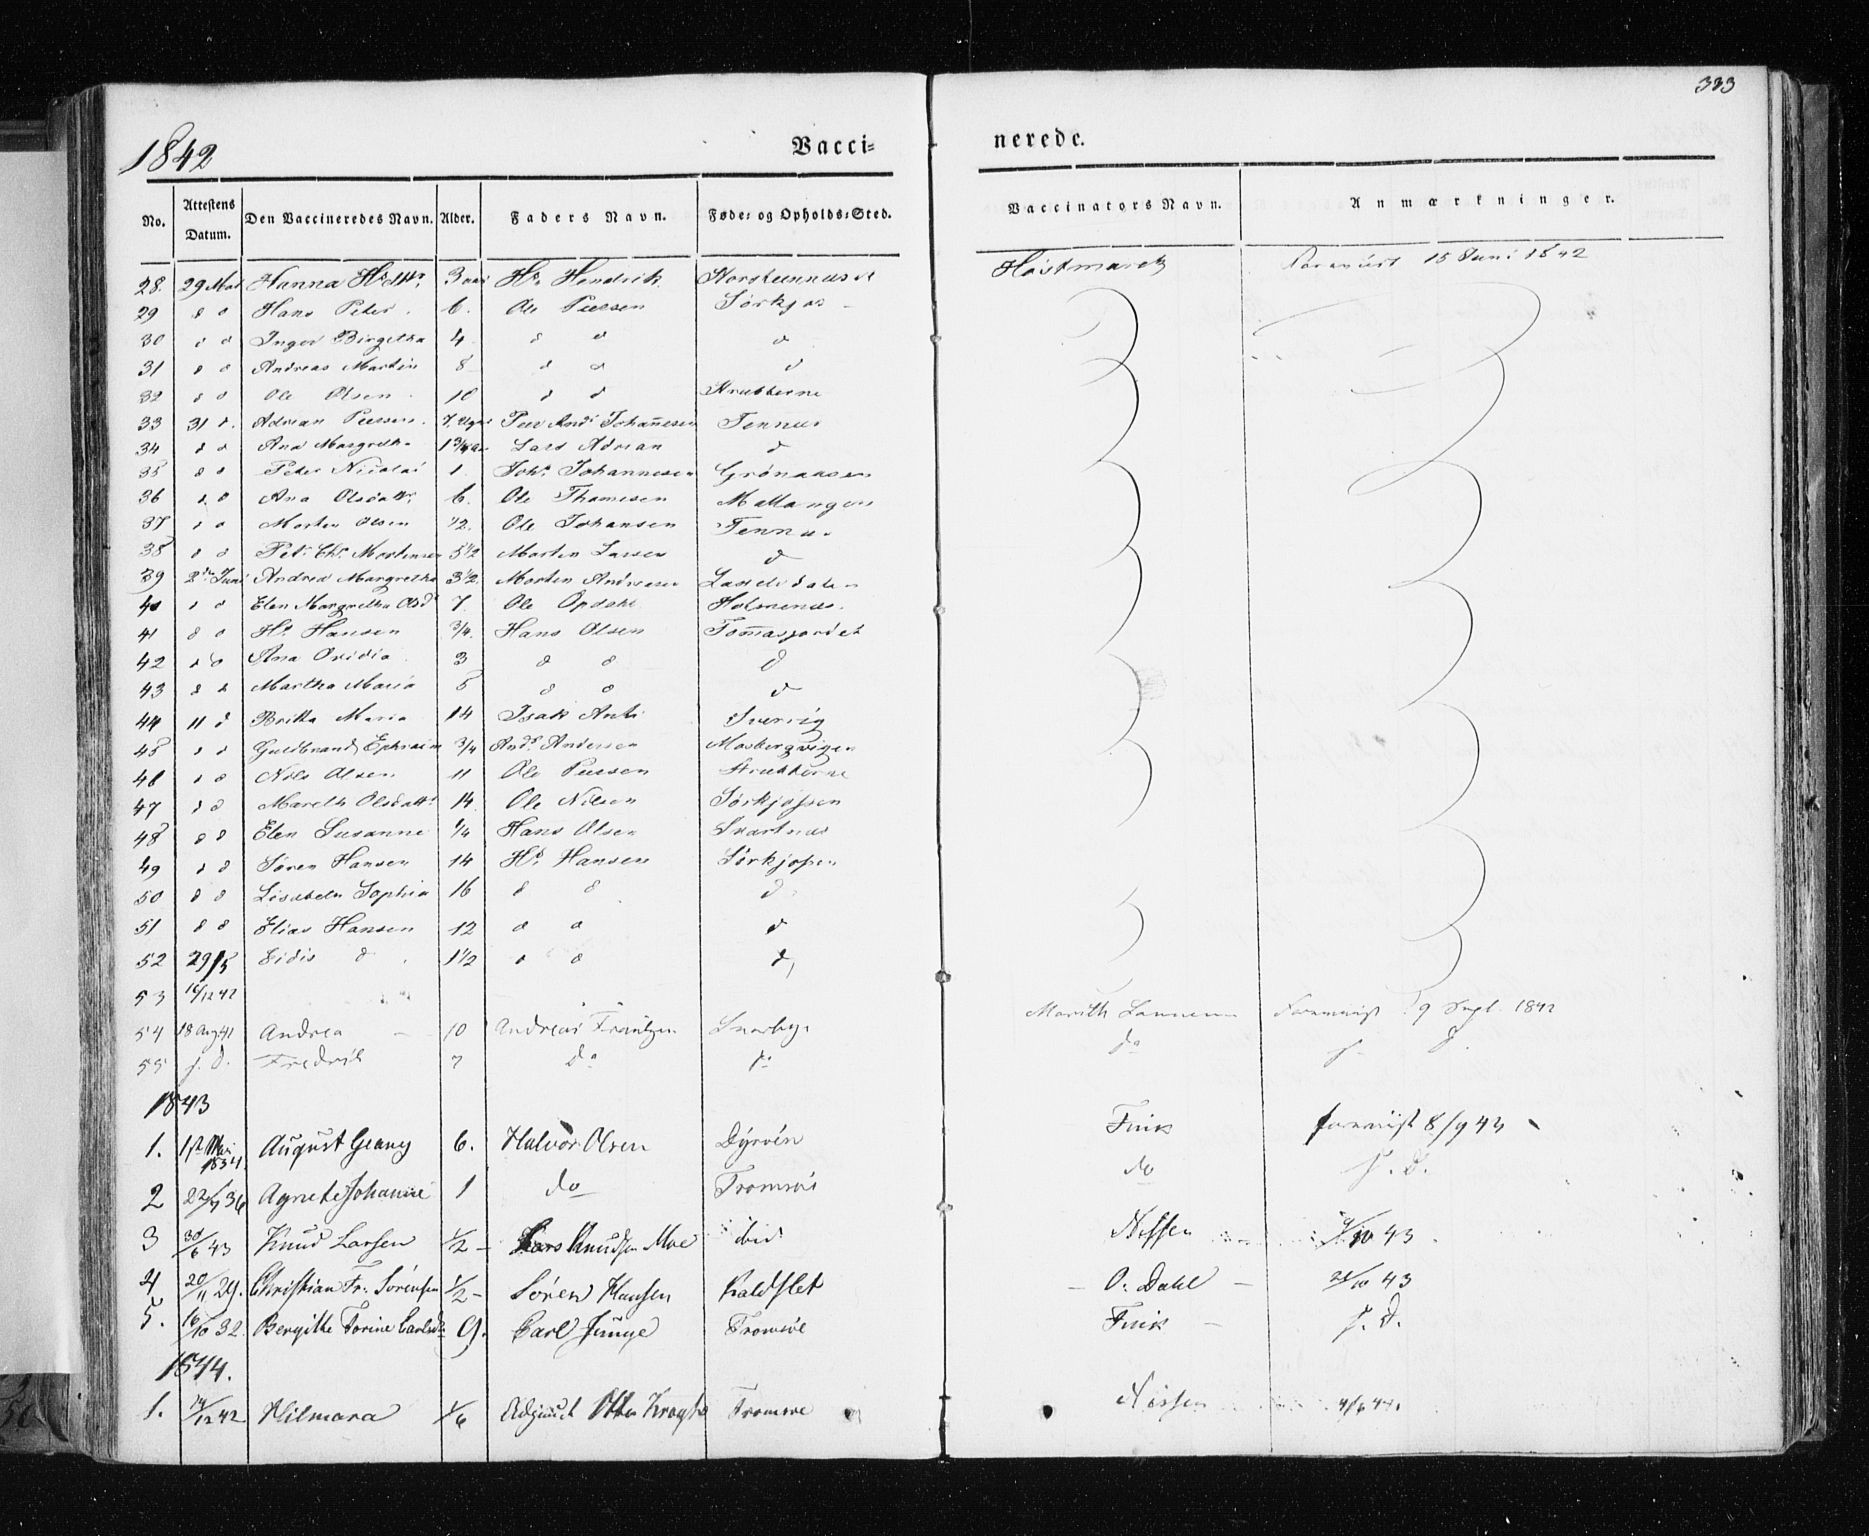 333
1842 Vacci= nerede.
No. Attestens Datum. Den Vaccineredes Navn. Alder. Faders Navn. Føde- og Opholds-Sted. Vaccinators Navn. Anmærkninger.
28. 29 Mai Hanna Hsdttr. 3 Hs. Hendrik Horstmarck 15 Juni 1842
29 d o Hans Peter. 6. Ole Peersen Sørkjos
30 d o Inger Birgetha 4 d o d
31 d o Andreas Martin 8 d o d
32 d o Ole Olsen 10 d d
33 31 d. Adrian Peersen. 7 Uger Peer Ands Johannesen Tennes
34 d o Ana Margretha 1 3/4 Lars Adrian d
35 d o Peter Nicolai 1. Johs. Johannesen Grønaasen
36 d o Ana Olsdattr. 6. Ole Thomesen Mallangen
37 d o Morten Olsen 1/2. Ole Johansen Tennes
38 d o Petr. Chr. Mortensen 5 1/2 Morten Larsen d
39 2den Juni Andrea Margretha 3 1/2 Morten Andreasen
40 d o Elen Margretha Olsd 7. Ole Opdahl Holmenes.
41 d o Hs. Hansen 3/4. Hans Olsen Tomasjordet
42 d o Ana Ovidia 3 d o d
43 d o Martha Maria 5 d o d
44 11 d Britha Maria 14 Isak Anti Sverrig
45 d d Guldbrand Ephraim 3/4 Ands. Andersen
46 d o Nils Olsen 11 Ole Peersen
47 d d Mareth Olsdattr. 14. Ole Nilsen Sørkjossen
48 d d Elen Susanne 1/4 Hans Olsen Svartnæs
49 d d Søren Hansen 14 Hs. Hansen Sørkjosen
50 d d Lisabeth Sophia 16 d d d
51 d d Elias Hansen 12 d o d
52 29/5 Eidis d 1 1/2 d o d
53 16/12 42
54 18 Aug 41 Andrea 10 Andreas Frantzen Marith 19 Sept. 1842
55 s. d. Fredrik 7 do do do s. d.
1843
1. Mai 1834 August Geany 6. Halvor Olsen Dyrøen Fink foreviist 8/9 43
2 22/7 36 Agnete Johanne 1 do Tromsøe do s. d.
3 30/6 43 Knud Larsen 1/2 Lars Knudsen Moe ibid Nissen 9/10 43
4 20/11 29. Christian Fr. Sørensen 1/2 Søren Hansen Kaldslet O. Dahl 21/10 43
5. 16/10 32 Bergitte Torine Carlsd. 9. Carl Junge Tromsøe Fink s. d.
1844.
1. 14/12 42 Hilmara 1/6 Adjunct Otto Krogh Tromsøe Nissen 4/6 44.